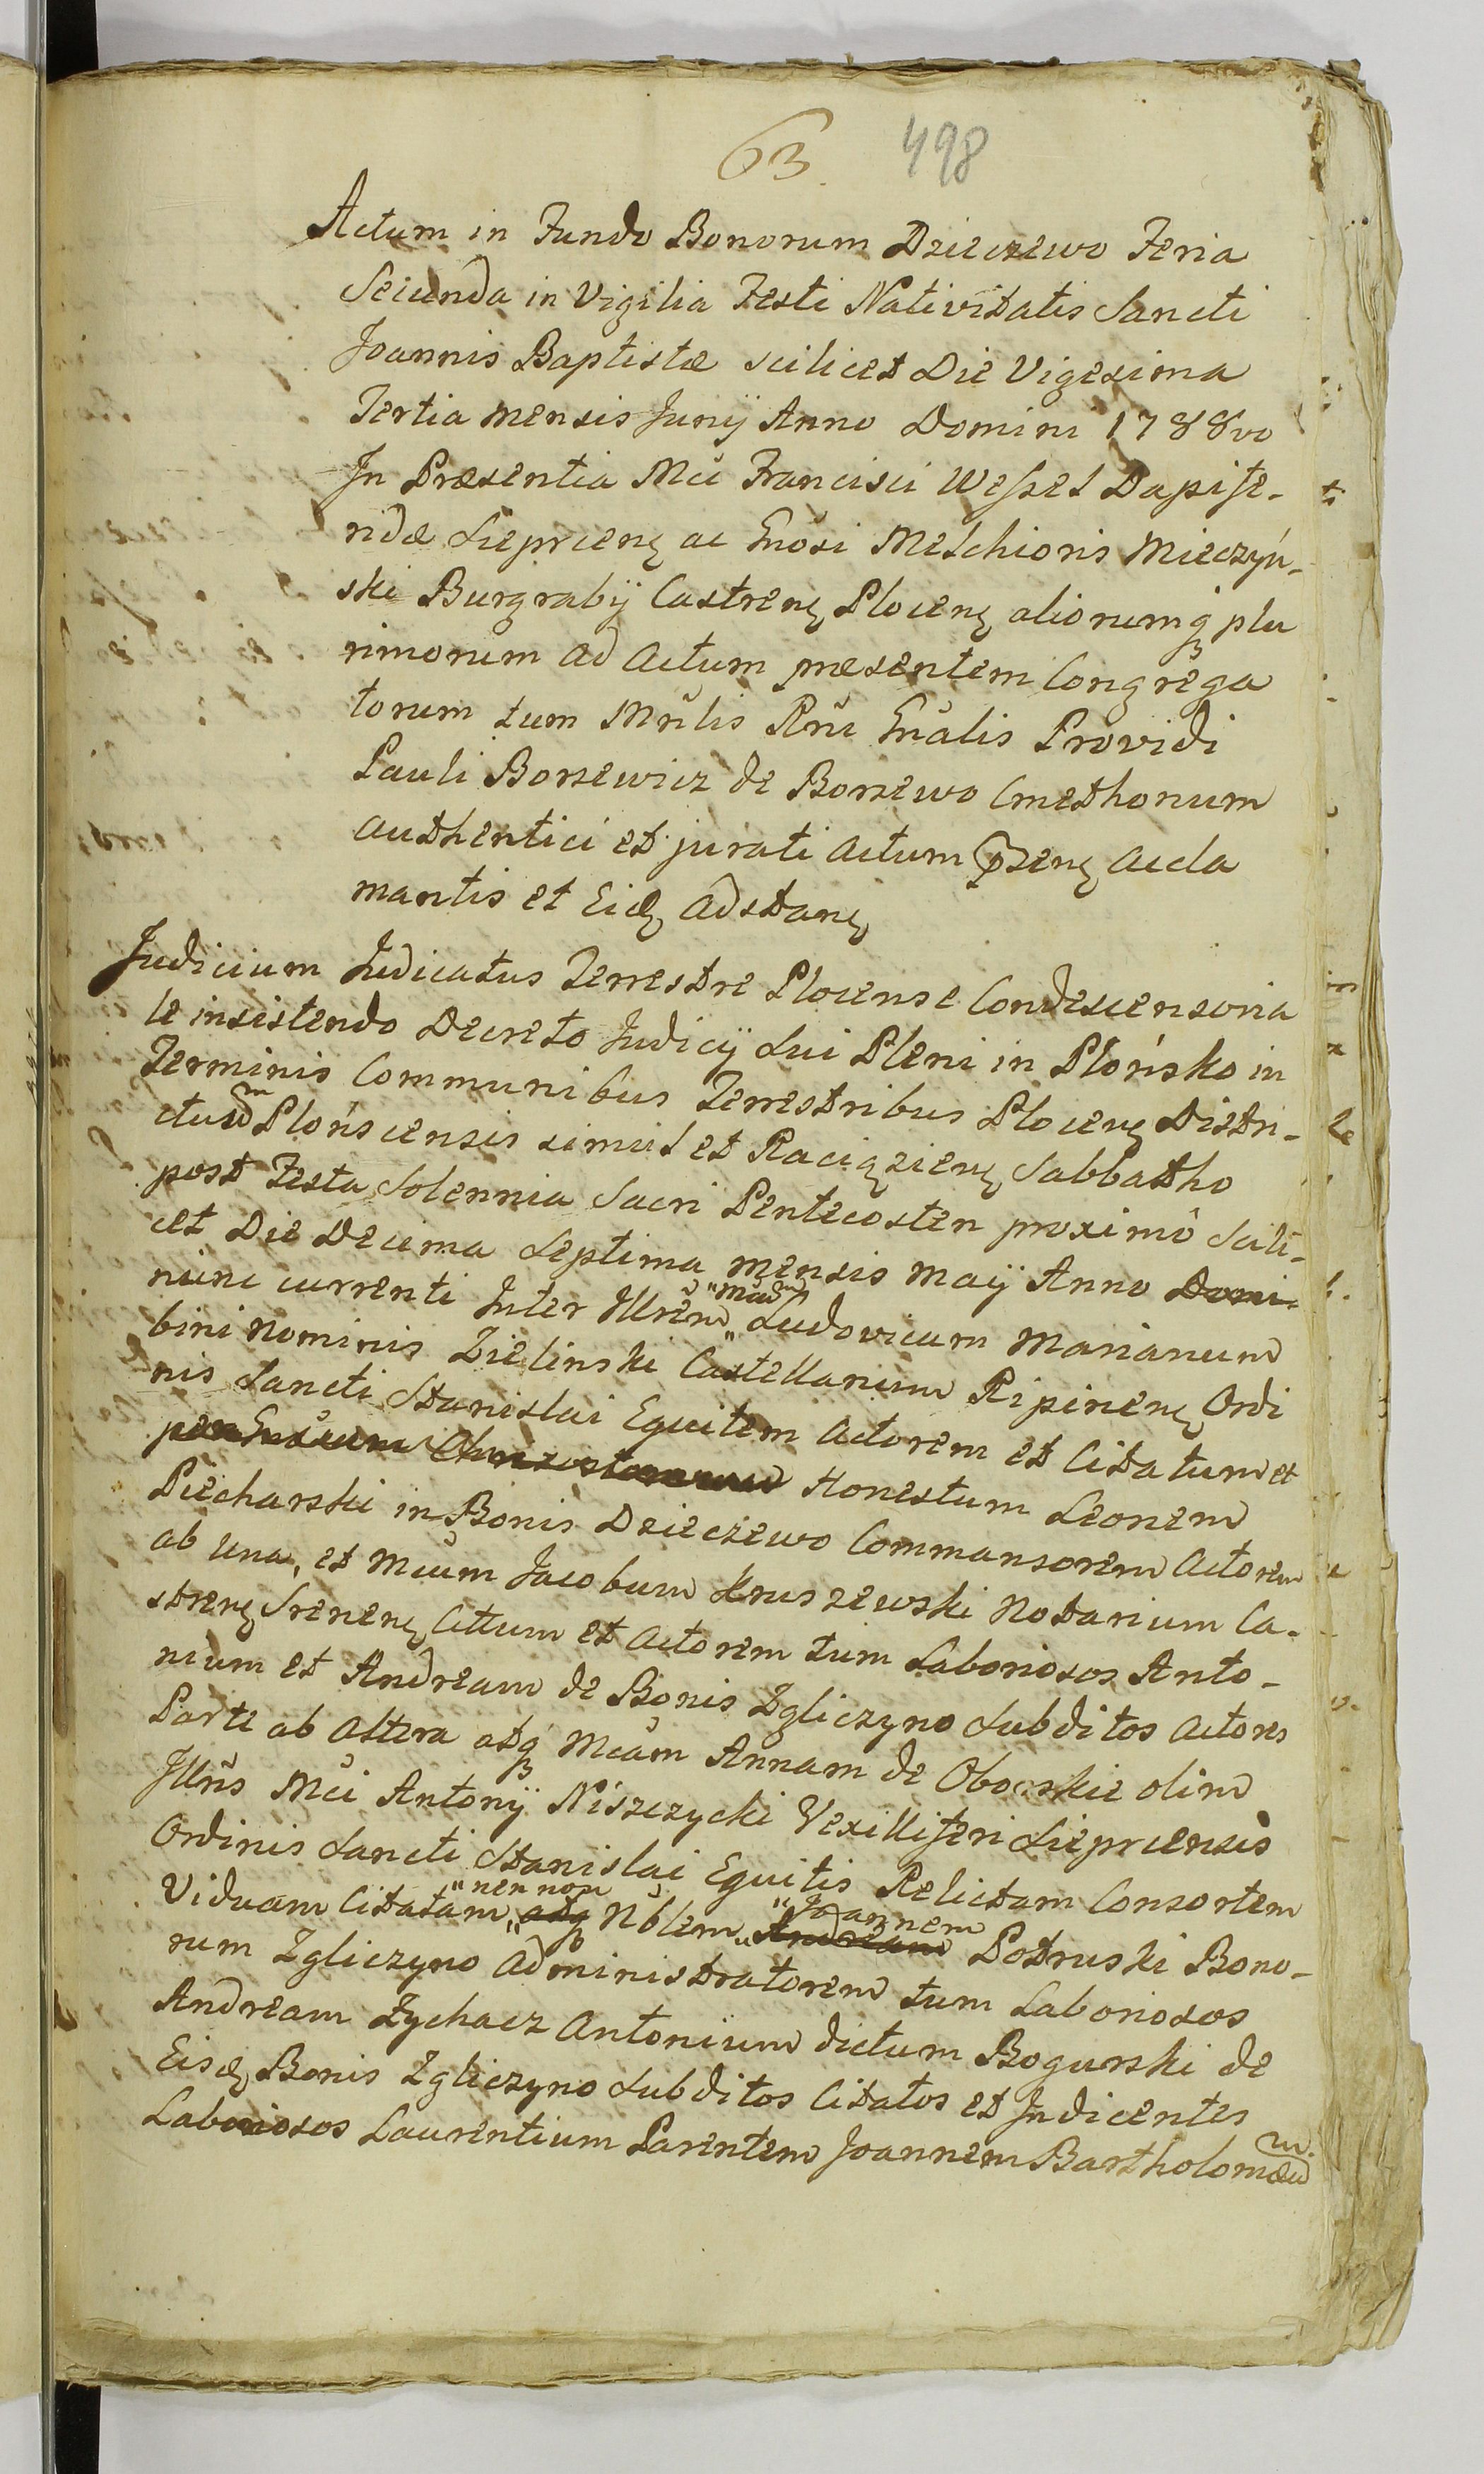 63. 498
Actum in Fundo Bonorum Dzieczewo Feria
Secunda in Vigilia Festi Nativitatis Sancti
Joannis Baptistæ scilicet Die Vigesima
Tertia mensis Junij Anno Domini 1788vo
In Præsentia Mci Francisci Wessel Dapife-
ridæ Lieprcenę ac Gnosi Melchioris Mieczyń-
ski Burgrabij Castrenę Plocenę aliorumq plu
rimorum ad Actum præsentem Congrega
torum tum Mrilis Rni Gnalis Providi
Pauli Borzewicz de Borzewo Cmethonum
authentici et jurati actum pzenę acela
mantis et Eidę adstanę
Judicium Judicatus Terrestre Plocense Condescensoria
le insistendo Decreto Judicij Sui Pleni in Płońsko in
Terminis Communibus Terrestribus Plocenę Distri-
ctuum Płońscensis simul et Raciązienę Sabbatho
post Festa Solennia Sacri Pentecosten proximô Scili-
cet Die Decima Septima mensis Maij Anno Domi-
nunc currenti Inter Illrem "Mcum" Ludovicum Marianum
bini nominis Zielinski Castellanum Ripinenę Ordi
nis Sancti Stanislai Equitem Actorem et Citatum et
per Gnosum Chrizostomum Honestum Leonem
Piecharski in Bonis Dzieczewo Commansorem Actorem
ab una, et Mcum Jacobum Kruszewski Notarium Ca-
strenę Srenenę Cittum et Actorem tum Laboriosos Anto-
nium et Andream de Bonis Zgliczyno Subditos Actores
Parte ab altera atq Mcam Annam de Oborskie olim
Illris Mci Antonij Niszczycki Vexilliferi Lieprcensis
Ordinis Sancti Stanislai Equitis Relictam Consortem
Viduam Citatam "nec non" atq Nblem "Joannem" Andream Potruski Bono-
rum Zgliczyno Administratorem tum Laboriosos
Andream Zychacz Antonium dictum Bogurski de
Eisdę Bonis Zgliczyno Subditos Citatos et Judicentes
Laboriosos Laurentium Parentem Joannem Bartholomæum